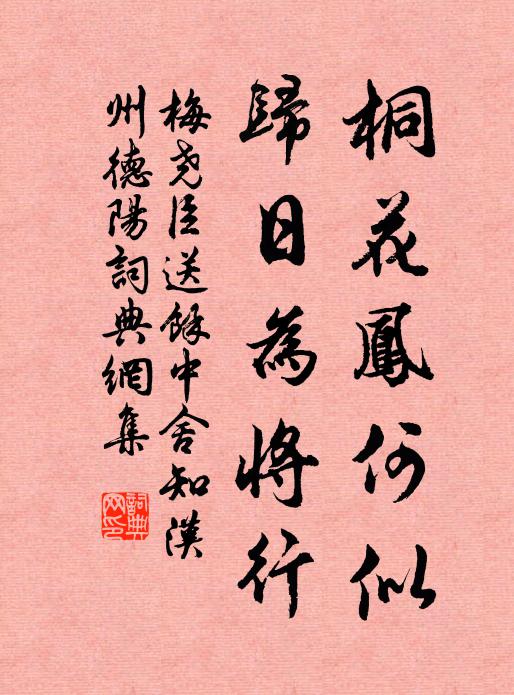 桐花鳳何似
歸日為將行
梅尧臣送餘中舍知漢
州德陽詞典網集
詞典
网印